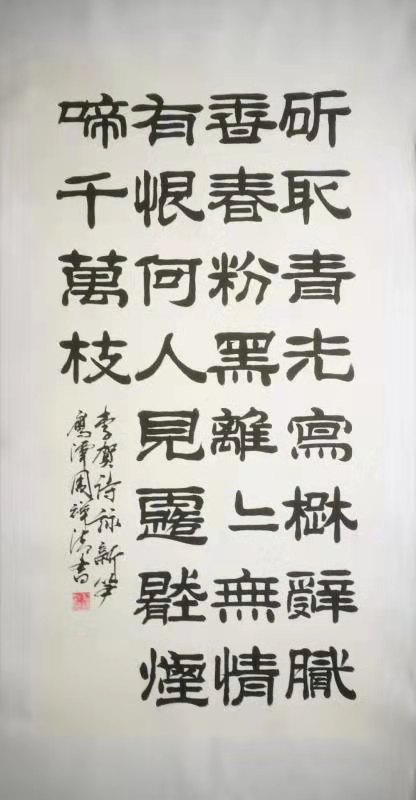 斫取青光寫楚辭膩
香春粉黑離〻無情
有恨何人見露壓煙
啼千萬枝
李賀詩詠新笋
鷹潭周書